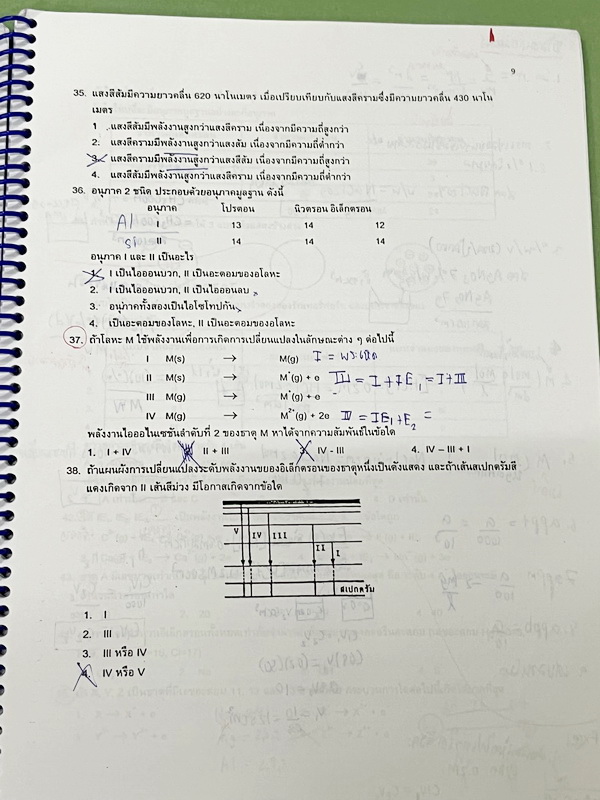 9
35. แสงสีส้มมีความยาวคลื่น 620 นาโนเมตร เมื่อเปรียบเทียบกับแสงสีครามซึ่งมีความยาวคลื่น 430 นาโน
เมตร
1 แสงสีส้มมีพลังงานสูงกว่าแสงสีคราม เนื่องจากมีความถี่สูงกว่า
2. แสงสีครามมีพลังงานสูงกว่าแสงส้ม เนื่องจากมีความถี่ต่ำกว่า
3. แสงสีครามมีพลังงานสูงกว่าแสงสีส้ม เนื่องจากมีความถี่สูงกว่า
4. แสงสีส้มมีพลังงานสูงกว่าแสงสีคราม เนื่องจากมีความถี่ต่ำกว่า
36. อนุภาค 2 ชนิด ประกอบด้วยอนุภาคมูลฐาน ดังนี้
อนุภาค โปรตอน นิวตรอน อิเล็กตรอน
Al I 13 14 12
Si II 14 14 14
อนุภาค I และ II เป็นอะไร
1. I เป็นไอออนบวก, II เป็นอะตอมของอโลหะ
2. I เป็นไอออนบวก, II เป็นไอออนลบ
3. อนุภาคทั้งสองเป็นไอโซโทปกัน
4. เป็นอะตอมของโลหะ, II เป็นอะตอมของอโลหะ
37. ถ้าโลหะ M ใช้พลังงานเพื่อการเกิดการเปลี่ยนแปลงในลักษณะต่าง ๆ ต่อไปนี้
I M(s) → M(g) I =
II M(s) → M⁺(g) + e III = I + IE₁ = I+III
III M(g) → M⁺(g) + e
IV M(g) → M²⁺(g) + 2e IV = IE₁+E₂ =
พลังงานไอออไนเซชันลำดับที่ 2 ของธาตุ M หาได้จากความสัมพันธ์ในข้อใด
1. I + IV 2. II + III 3. IV - III 4. IV – III + I
38. ถ้าแผนผังการเปลี่ยนแปลงระดับพลังงานขยองอิเล็กตรอนของธาตุหนึ่งเป็นดังแสดง และถ้าเส้นสเปกตรัมสี
แดงเกิดจาก II เส้นสีม่วง มีโอกาสเกิดจากข้อใด
V IV III
II I
สเปกตรัม
1. I
2. III
3. III หรือ IV
4. IV หรือ V